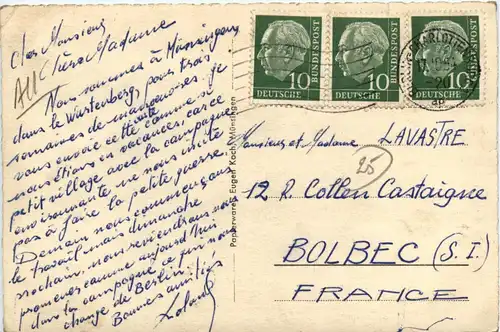 Cher Monsieur
Chère Madame
Nous sommes à Münsingen
dans le Wurtenberg pour trois
semaines de manoeuvres je
vous envoie cette carte comme si
nous étions en vacances car ce
petit village avec la campagne
environnante ne nous invite
pas à faire la petite guerre.
Demain nous commençons
le travail mais dimanche
prochain, nous reviendrons nous
promener comme aujourd'hui
dans la campagne ce qui nous
change de Berlin.
Bonnes amitiés
Papierwaren Eugen Koch, Münsingen
10
DEUTSCHE
BUNDESPOST
10
DEUTSCHE
BUNDESPOST
10
DEUTSCHE
Monsieur et Madame LAVASTRE
25
12 R. Collen Castaigne
BOLBEC (S.I.)
FRANCE